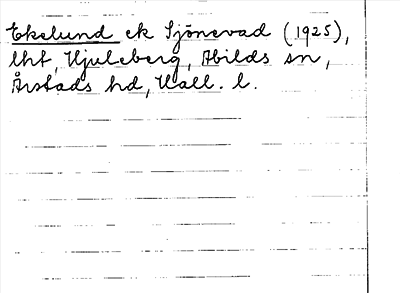 Ekelund ek Sjönevad (1925),
lht, Hjuleberg, Abilds sn,
Årstads hd, Hall. l.